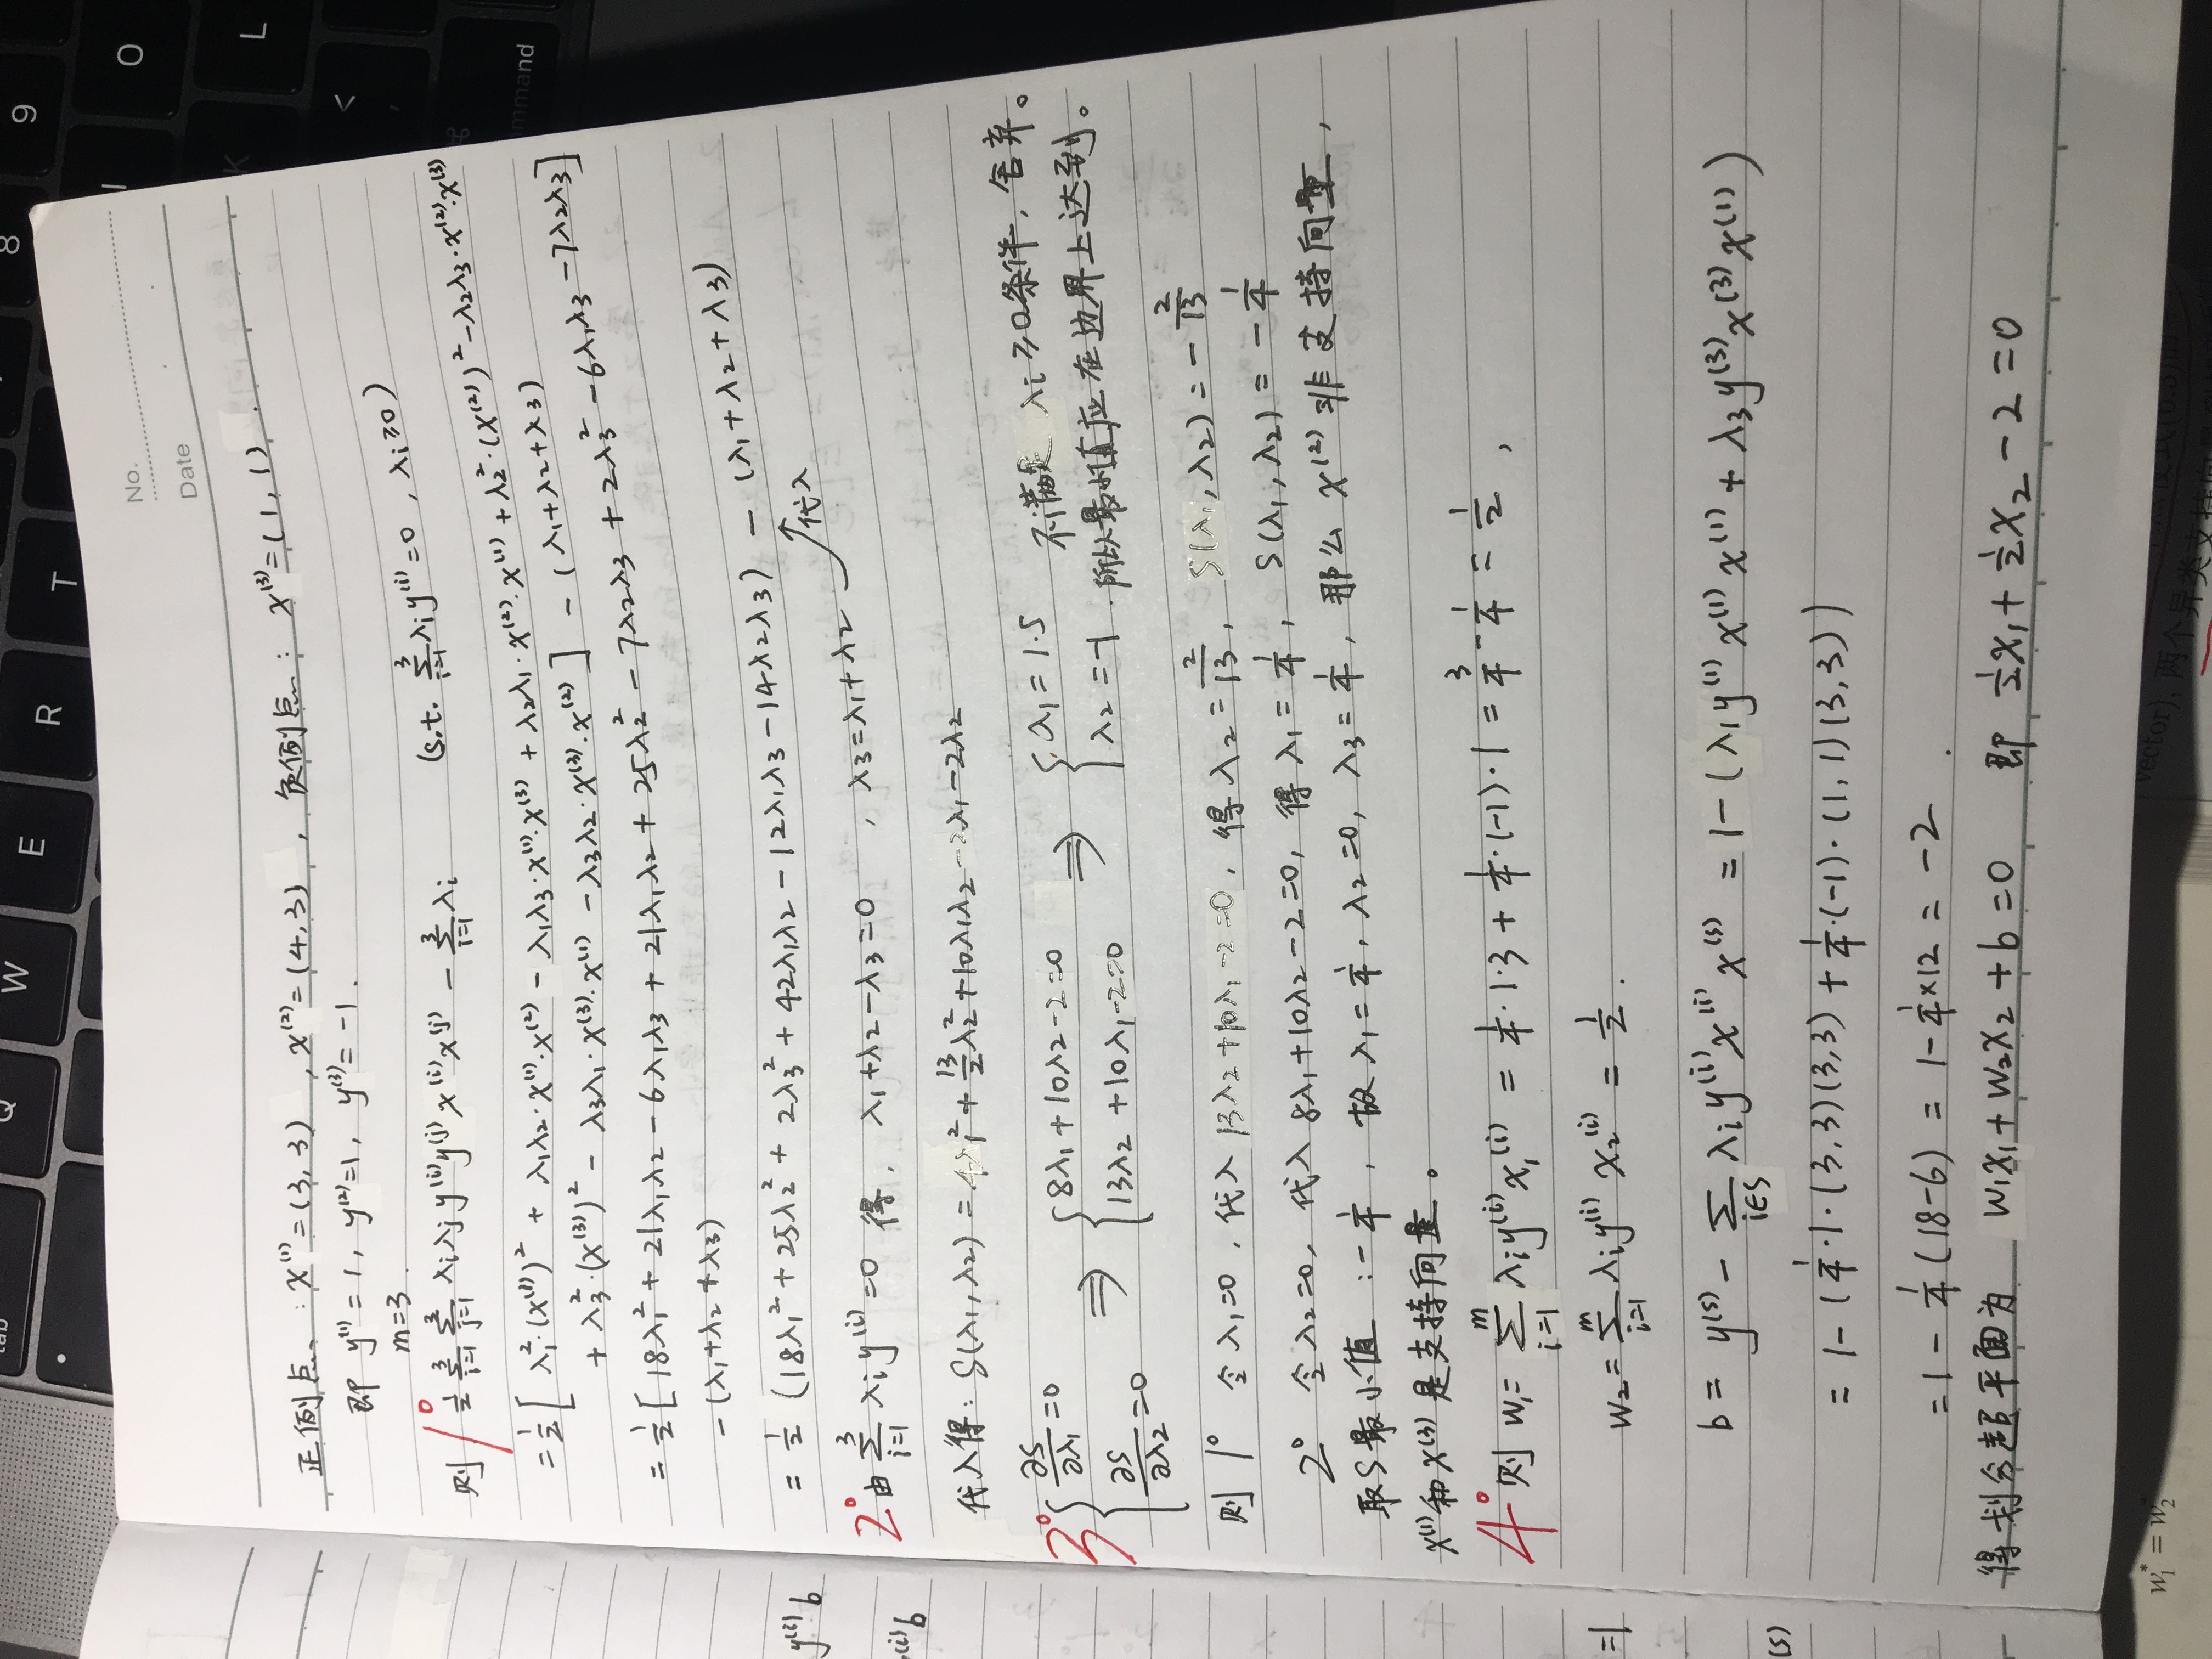 tab
Q
W
E
R
T
8
9
I
O
K
L
<
,
⌘
mmand
No.
Date
正例点:x⁽¹⁾=(3,3) ,x⁽²⁾=(4,3) , 负例点: x⁽³⁾=(1,1) .
即 y⁽¹⁾=1, y⁽²⁾=1, y⁽³⁾=-1 .
m=3 .
则 1° ½ Σ_{i=1}^{3} Σ_{j=1}^{3} λiλj y⁽ⁱ⁾y⁽ʲ⁾ x⁽ⁱ⁾x⁽ʲ⁾ - Σ_{i=1}^{3} λi (s.t. Σ_{i=1}^{3} λi y⁽ⁱ⁾=0 , λi≥0)
=½[ λ₁²·(x⁽¹⁾)² + λ₁λ₂·x⁽¹⁾·x⁽²⁾ - λ₁λ₃·x⁽¹⁾·x⁽³⁾ + λ₂λ₁·x⁽²⁾·x⁽¹⁾ + λ₂²·(x⁽²⁾)² - λ₂λ₃·x⁽²⁾·x⁽³⁾
+ λ₃²·(x⁽³⁾)² - λ₃λ₁·x⁽³⁾·x⁽¹⁾ - λ₃λ₂·x⁽³⁾·x⁽²⁾ ] - (λ₁+λ₂+λ₃)
=½[ 18λ₁² + 21λ₁λ₂ - 6λ₁λ₃ + 21λ₁λ₂ + 25λ₂² - 7λ₂λ₃ + 2λ₃² - 6λ₁λ₃ - 7λ₂λ₃]
-(λ₁+λ₂+λ₃)
= ½ (18λ₁² + 25λ₂² + 2λ₃² + 42λ₁λ₂ - 12λ₁λ₃ - 14λ₂λ₃) - (λ₁+λ₂+λ₃)
代入
2° 由 Σ_{i=1}^{3} λi y⁽ⁱ⁾=0 得, λ₁+λ₂-λ₃=0 , λ₃=λ₁+λ₂
代入得: S(λ₁,λ₂) = 4λ₁² + 13/2 λ₂² + 10λ₁λ₂ - 2λ₁ - 2λ₂
3° { ∂S/∂λ₁=0 ⇒ { 8λ₁+10λ₂-2=0 ⇒ { λ₁=1.5 不满足 λi≥0条件,舍弃。
∂S/∂λ₂=0 13λ₂+10λ₁-2=0 λ₂=-1 . 所以最小值应在边界上达到。
则 1° 令λ₁=0 , 代入 13λ₂+10λ₁-2=0, 得 λ₂=2/13, S(λ₁,λ₂)=-2/13
2° 令λ₂=0, 代入 8λ₁+10λ₂-2=0, 得 λ₁=1/4, S(λ₁,λ₂)=-1/4
取S最小值 :-1/4 , 故 λ₁=1/4, λ₂=0, λ₃=1/4, 那么 x⁽²⁾ 非支持向量,
x⁽¹⁾和x⁽³⁾是支持向量。
4° 则 w₁= Σ_{i=1}^{m} λi y⁽ⁱ⁾x₁⁽ⁱ⁾ = 1/4·1·3 + 1/4·(-1)·1 = 3/4 - 1/4 = 1/2 ,
w₂= Σ_{i=1}^{m} λi y⁽ⁱ⁾ x₂⁽ⁱ⁾ = 1/2 .
b = y⁽ˢ⁾ - Σ_{i∈S} λi y⁽ⁱ⁾x⁽ⁱ⁾ x⁽ˢ⁾ = 1-(λ₁y⁽¹⁾x⁽¹⁾x⁽¹⁾ + λ₃y⁽³⁾x⁽³⁾x⁽¹⁾)
= 1-(1/4·1·(3,3)(3,3) + 1/4·(-1)·(1,1)(3,3))
=1 - 1/4(18-6) = 1-1/4×12 = -2 .
得划分超平面为 w₁x₁+w₂x₂+b=0 即 ½x₁+½x₂-2=0
y⁽ⁱ⁾b
⁽ⁱ⁾b
=1
(s)
w₁* = w₂*
vector), 两个异类支持向量